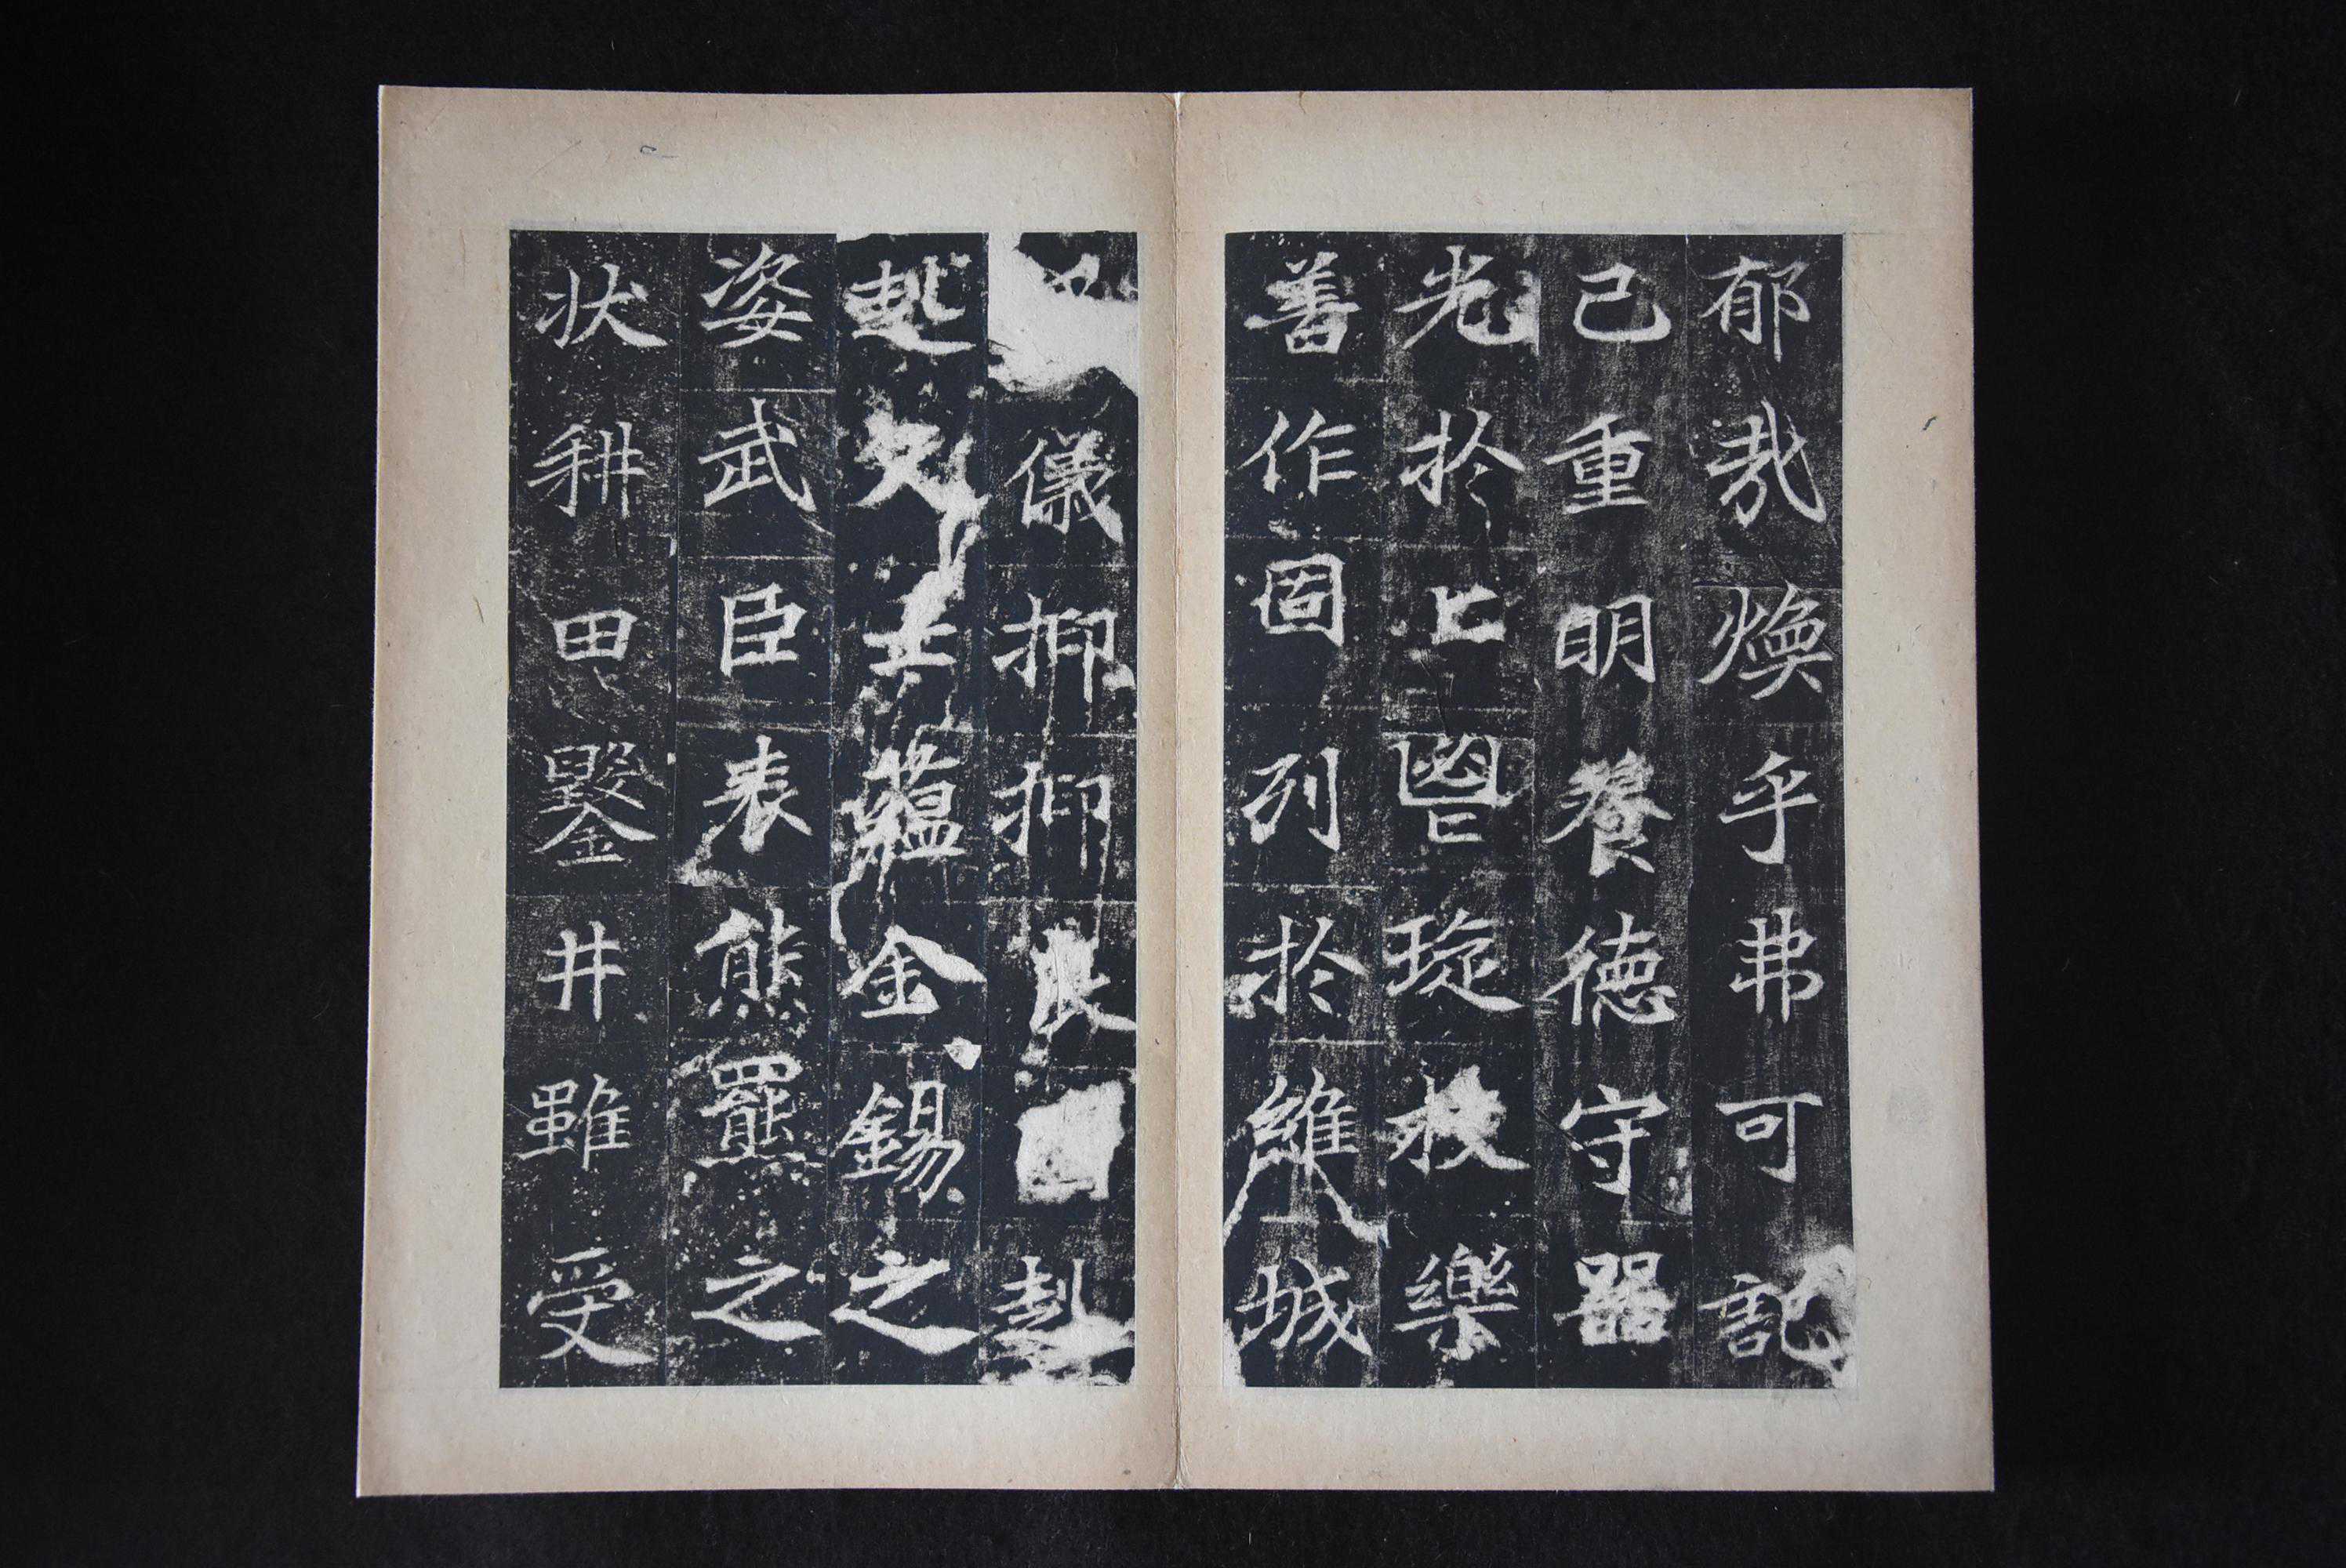 郁哉煥乎弗可記
己重明養德守器
光於匕鬯琁枝樂
善作固列於維城
儀抑抑良赳
赳文士蘊金錫之
姿武臣表熊羆之
狀耕田鑿井雖受